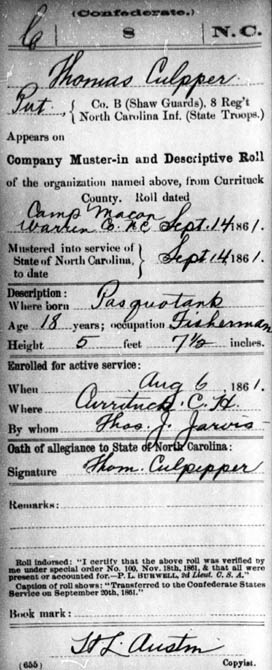 (Confederate.)
C 8 N.C.
Thomas Culpper
Pvt., { Co. B (Shaw Guards), 8 Reg't
North Carolina Inf. (State Troops.)
Appears on
Company Muster-in and Descriptive Roll
of the organization named above, from Currituck
County. Roll dated
Camp Macon
Warren Co. N.C. Sept. 14 1861.
Mustered into service of
State of North Carolina, } Sept. 14 1861.
to date
Description:
Where born Pasquotank
Age 18 years; occupation Fisherman
Height 5 feet 7½ inches.
Enrolled for active service:
When Aug 6, 1861.
Where Currituck C. H
By whom Thos. J. Jarvis
Oath of allegiance to State of North Carolina:
Signature Thom. Culpipper
Remarks:
Roll indorsed: "I certify that the above roll was verified by
me under special order No. 100, Nov. 18th, 1861, & that all were
present or accounted for.—P. L. BURWELL, 2d Lieut. C. S. A."
Caption of roll shows: "Transferred to the Confederate States
Service on September 20th, 1861."
Book mark:
H L Austin
(655) Copyist.